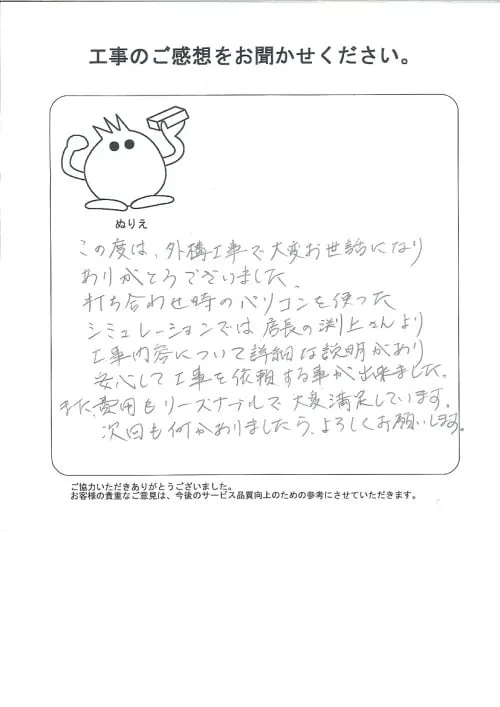 工事のご感想をお聞かせください。
ぬりえ
この度は、外構工事で大変お世話になり
ありがとうございました。
打ち合わせ時のパソコンを使った
シミュレーションでは店長の渕上さんより
工事内容について詳細な説明があり
安心して工事を依頼する事が出来ました。
また、費用もリーズナブルで大変満足しています。
次回も何かありましたら、よろしくお願いします。
ご協力いただきありがとうございました。
お客様の貴重なご意見は、今後のサービス品質向上のための参考にさせていただきます。